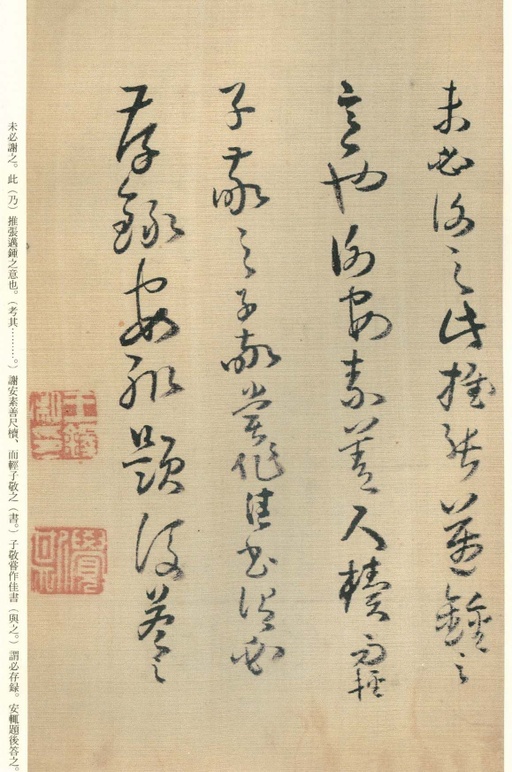 未必謝之此推張邁鍾之
意也謝安素善尺牘而輕
子敬之子敬嘗作佳書謂必
存録安輒題後答之
未必謝之。此（乃）推張邁鍾之意也。（考其………。）謝安素善尺牘、而輕子敬之（書。）子敬嘗作佳書（與之。）謂必存録。安輒題後答之。